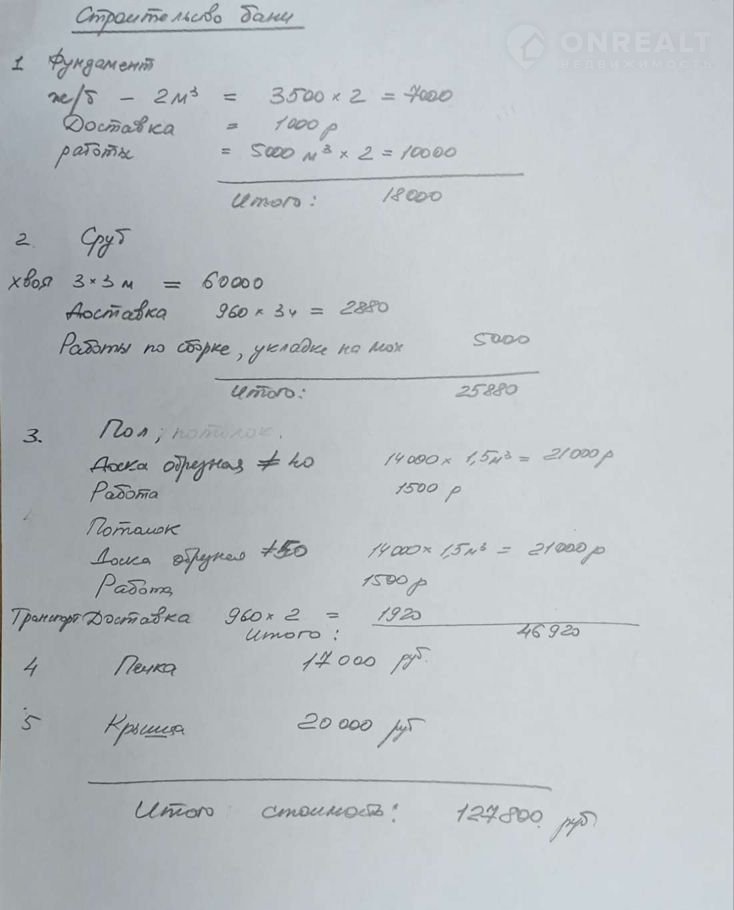 Строительство бани
ONREALT
НЕДВИЖИМОСТЬ
1 Фундамент
ж/б - 2м³ = 3500 × 2 = 7000
Доставка = 1000 р
работы = 5000 м³ × 2 = 10000
Итого: 18000
2. Сруб
хвоя 3×3 м = 60000
Доставка 960 × 3ч = 2880
Работы по сборке, укладке на мох 5000
Итого: 25880
3. Пол, потолок.
Доска обрезная 40 14000 × 1,5м³ = 21000 р
Работа 1500 р
Потолок
Доска обрезная 50 14000 × 1,5м³ = 21000 р
Работа 1500 р
Транспорт Доставка 960 × 2 = 1920
Итого: 46920
4 Печка 17000 руб.
5 Крыша 20000 руб
Итого стоимость: 127800 руб.